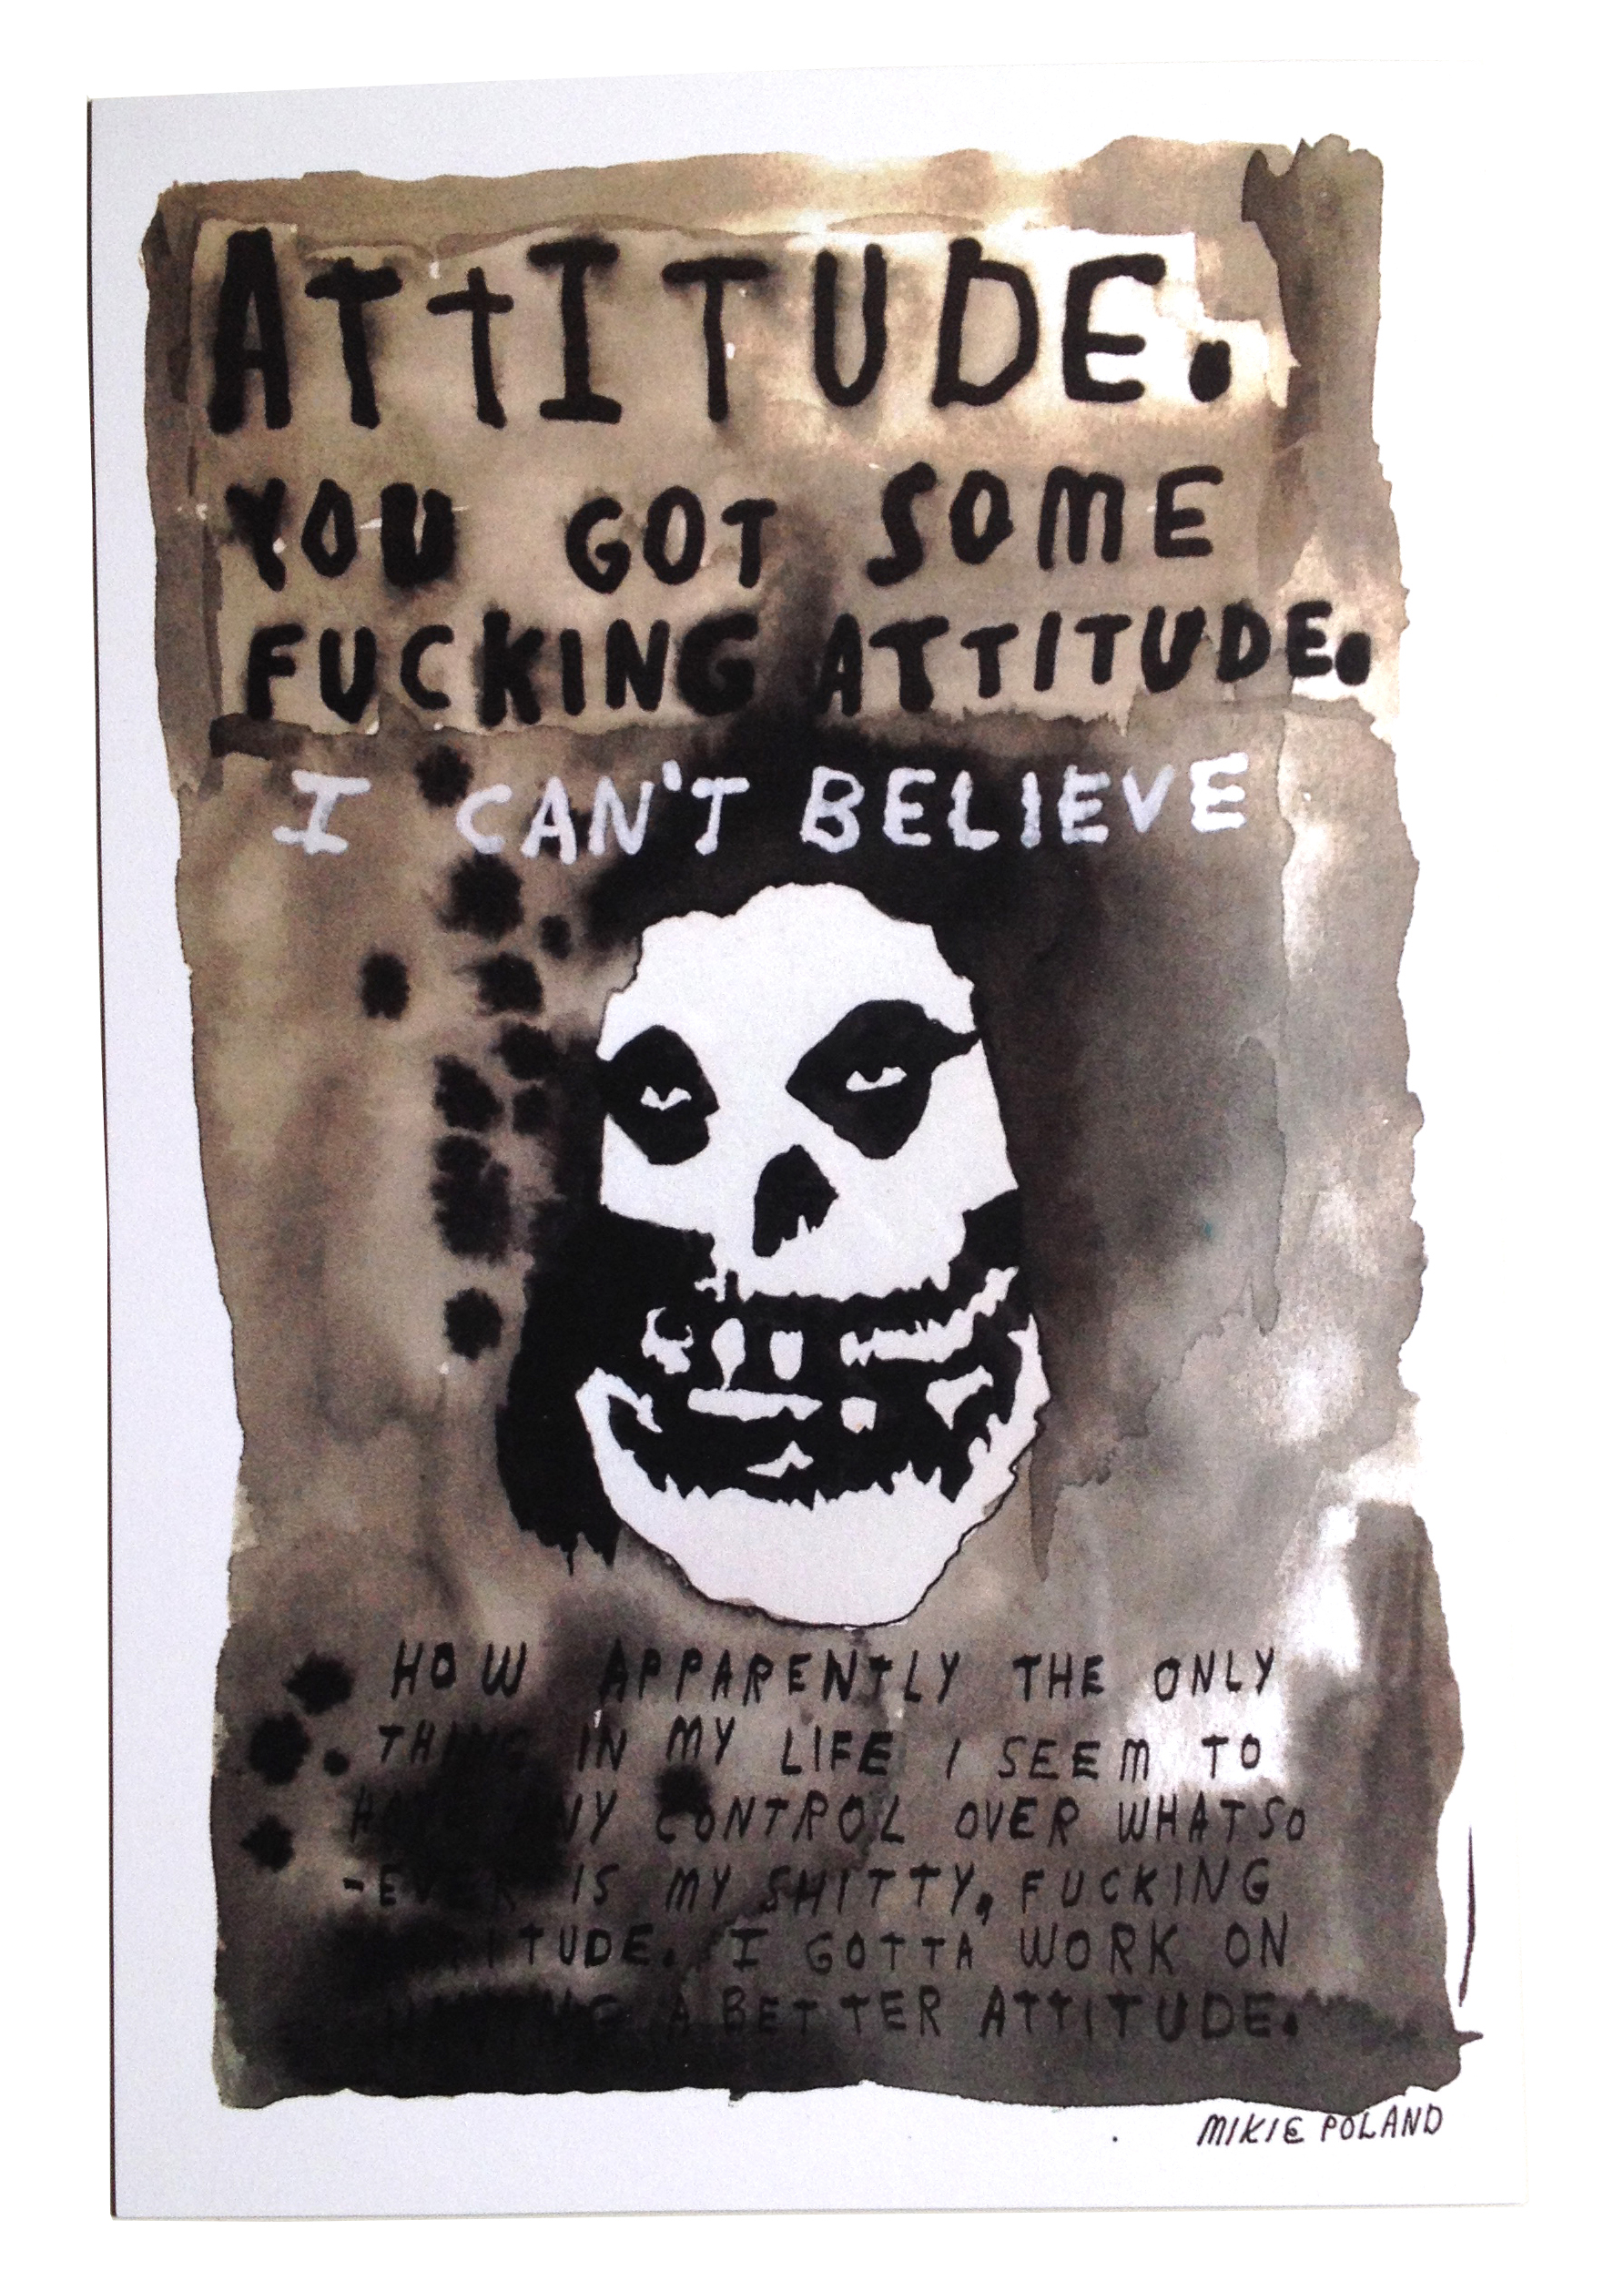 ATTITUDE.
YOU GOT SOME
FUCKING ATTITUDE.
I CAN'T BELIEVE
HOW APPARENTLY THE ONLY
THING IN MY LIFE I SEEM TO
HAVE ANY CONTROL OVER WHATSO
-EVER IS MY SHITTY, FUCKING
ATTITUDE. I GOTTA WORK ON
HAVING A BETTER ATTITUDE.
MIKIE POLAND